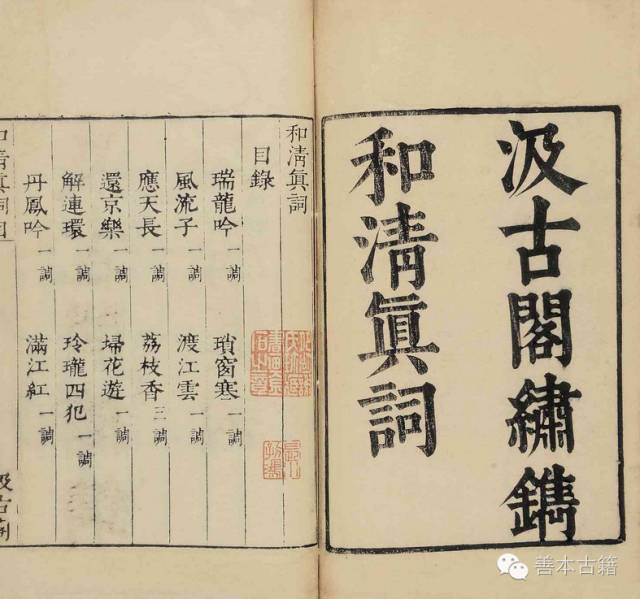 汲古閣繡鐫
和清眞詞
和清眞詞
目錄
瑞龍吟一調 瑣窗寒一調
風流子一調 渡江雲一調
應天長一調 荔枝香三調
還京樂一調 埽花遊一調
解連環一調 玲瓏四犯一調
丹鳳吟一調 滿江紅一調
和清眞詞目
汲古閣
善本古籍